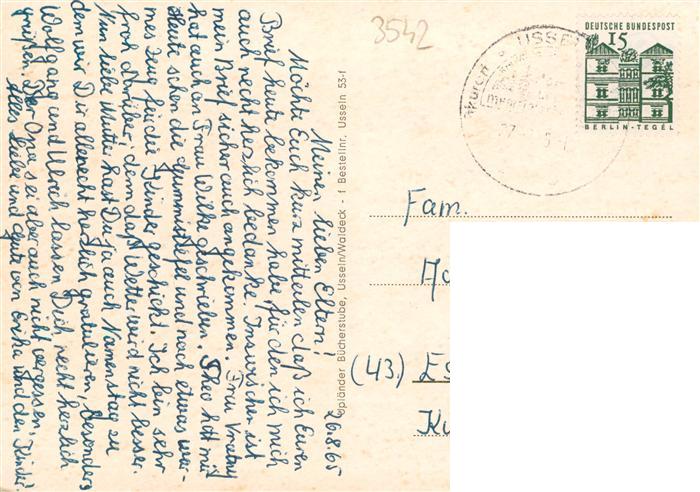 3542
DEUTSCHE BUNDESPOST
15
BERLIN-TEGEL
USSE
26.8.65
Meine lieben Eltern!
Möchte Euch kurz mitteilen daß ich Euren
Brief heute bekommen habe, für den ich mich
auch recht herzlich bedanke. Inzwischen ist
mein Brief sicher auch angekommen. Frau
hat auch an Frau Wilke geschrieben. Theo hat mir
heute schon die Gummistiefel und noch etwas war-
mes Zeug für die Kinder geschickt. Ich bin sehr
froh darüber, denn das Wetter wird nicht besser.
Nun liebe Mutter hast Du ja auch Namenstag zu
dem wir Dir allerseits herzlich gratulieren, besonders
Wolfgang und Ulrich lassen Dich recht herzlich
grüßen. Der Opa sei aber auch nicht vergessen.
Alles Liebe und Gute von Erika und den Kinder.
Upländer Bücherstube, Usseln/Waldeck - f Bestellnr. Usseln 53-f
Fam.
(43) Es